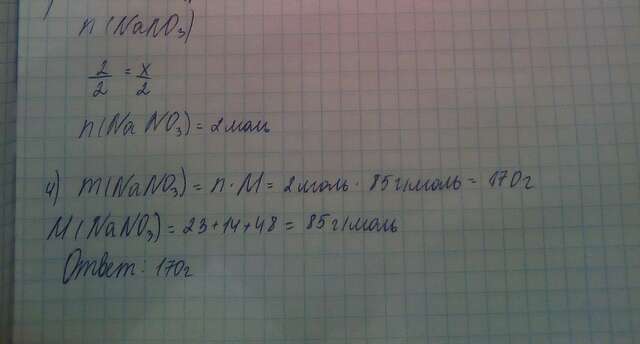 n(NaNO₃)
2/2 = x/2
n(NaNO₃) = 2 моль
4) m(NaNO₃) = n · M = 2 моль · 85 г/моль = 170 г
M(NaNO₃) = 23+14+48 = 85 г/моль
Ответ: 170 г